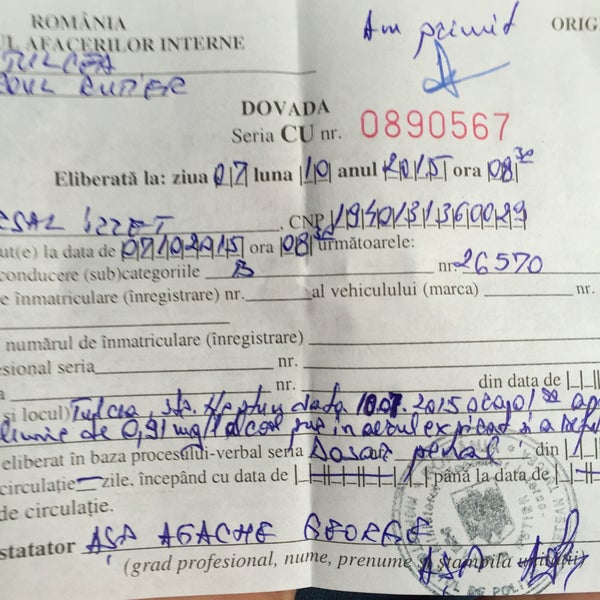 ROMÂNIA
UL AFACERILOR INTERNE
TULCEA
RUTIER
Am primit
ORIG
DOVADA
Seria CU nr. 0890567
Eliberată la: ziua 07 luna 10 anul 2015 ora 08 30
IZZET, CNP 1940313360029
ut(e) la data de 07102015 ora 08 30 următoarele:
conducere (sub)categoriile B nr. 26570
e înmatriculare (înregistrare) nr. al vehiculului (marca) nr.
numărul de înmatriculare (înregistrare)
esional seria nr.
a nr. din data de
și locul) Tulcea, str. Neptun data 2015
de 0,91 mg/l alcool pur în aerul expirat și a
eliberat în baza procesului-verbal seria Dosar penal din
circulație — zile, începând cu data de până la data de
de circulație.
statator ASP AGACHE GEORGE
(grad profesional, nume, prenume și ștampila unității)